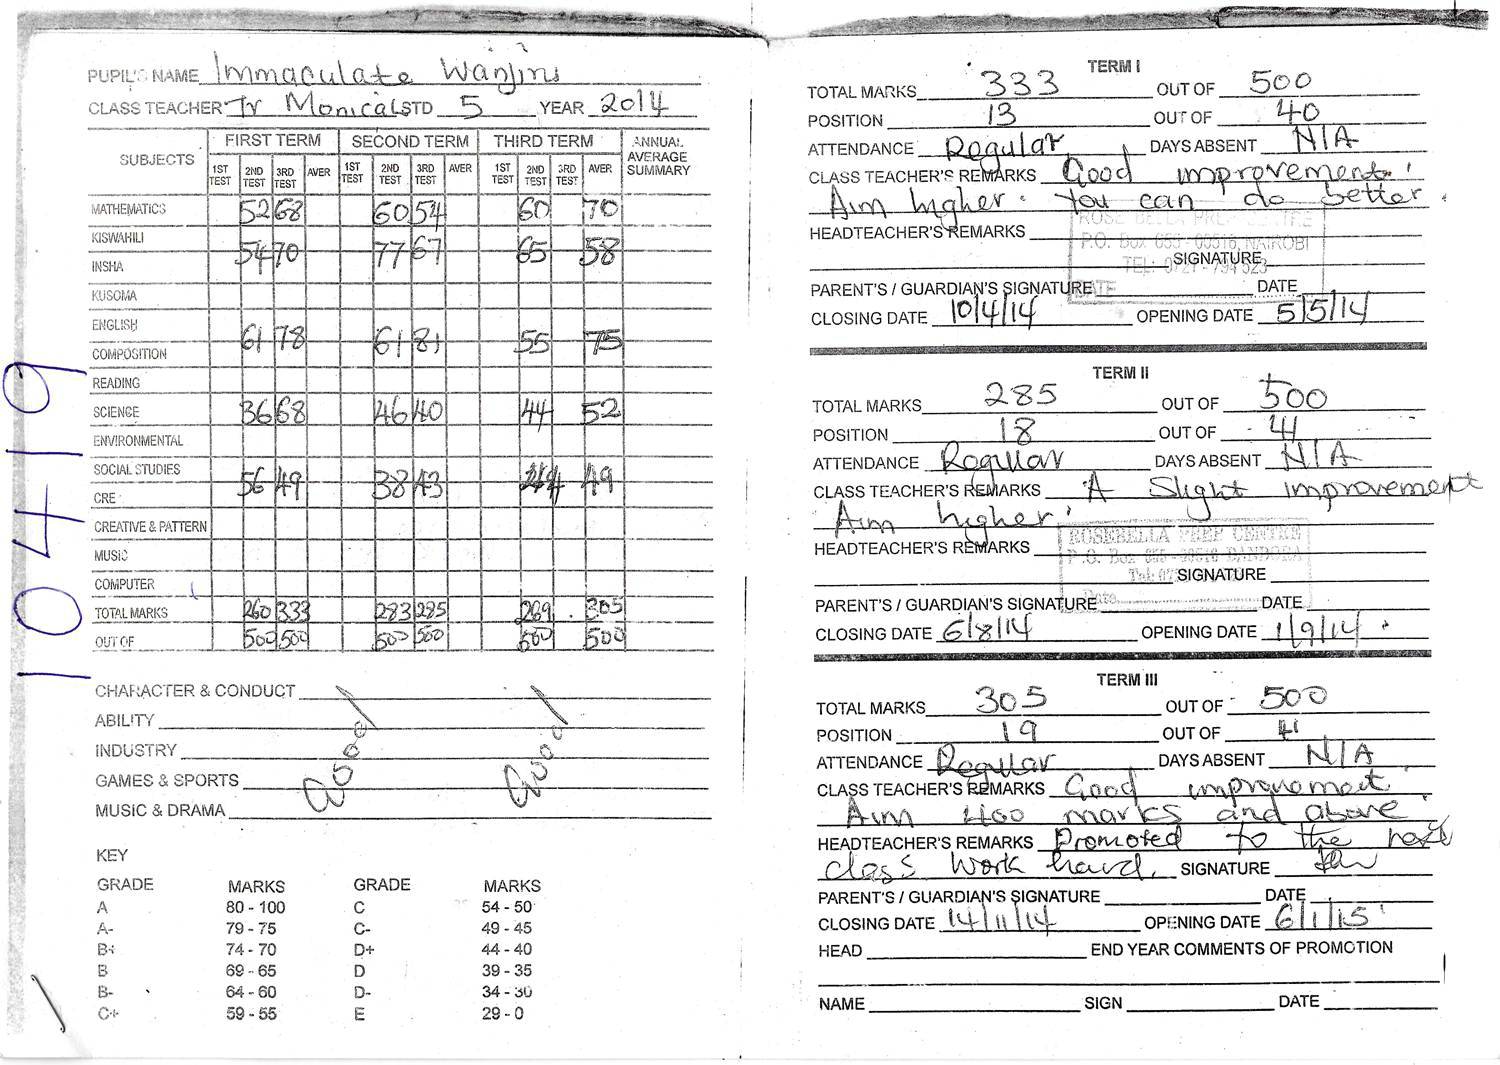 PUPIL'S NAME Immaculate Wanjiru
CLASS TEACHER Tr Monica STD 5 YEAR 2014
SUBJECTS FIRST TERM SECOND TERM THIRD TERM ANNUAL AVERAGE SUMMARY
1ST TEST 2ND TEST 3RD TEST AVER 1ST TEST 2ND TEST 3RD TEST AVER 1ST TEST 2ND TEST 3RD TEST AVER
MATHEMATICS 52 68 60 54 60 70
KISWAHILI 54 70 77 67 65 58
INSHA
KUSOMA
ENGLISH 61 78 61 81 55 75
COMPOSITION
READING
SCIENCE 36 68 46 40 44 52
ENVIRONMENTAL
SOCIAL STUDIES 56 49 38 43 49
CRE
CREATIVE & PATTERN
MUSIC
COMPUTER
TOTAL MARKS 260 333 283 285 269 305
OUT OF 500 500 500 500 500 500
CHARACTER & CONDUCT
ABILITY
INDUSTRY
GAMES & SPORTS
MUSIC & DRAMA
Good Good
KEY
GRADE MARKS GRADE MARKS
A 80 - 100 C 54 - 50
A- 79 - 75 C- 49 - 45
B+ 74 - 70 D+ 44 - 40
B 69 - 65 D 39 - 35
B- 64 - 60 D- 34 - 30
C+ 59 - 55 E 29 - 0
10419
TERM I
TOTAL MARKS 333 OUT OF 500
POSITION 13 OUT OF 40
ATTENDANCE Regular DAYS ABSENT N/A
CLASS TEACHER'S REMARKS Good improvement.
Aim higher. You can do better.
HEADTEACHER'S REMARKS
SIGNATURE
PARENT'S / GUARDIAN'S SIGNATURE DATE
CLOSING DATE 10/4/14 OPENING DATE 5/5/14
P.O. Box 655 - 00516, NAIROBI
TEL: 0721 - 794 523
DATE
TERM II
TOTAL MARKS 285 OUT OF 500
POSITION 18 OUT OF 41
ATTENDANCE Regular DAYS ABSENT N/A
CLASS TEACHER'S REMARKS A Slight improvement
Aim higher!
HEADTEACHER'S REMARKS
SIGNATURE
PARENT'S / GUARDIAN'S SIGNATURE DATE
CLOSING DATE 6/8/14 OPENING DATE 1/9/14
ROSEBELLA PREP CENTRE
P.O. Box 655 - 00516 DANDORA
Date
TERM III
TOTAL MARKS 305 OUT OF 500
POSITION 19 OUT OF 41
ATTENDANCE Regular DAYS ABSENT N/A
CLASS TEACHER'S REMARKS Good improvement.
Aim 400 marks and above
HEADTEACHER'S REMARKS Promoted to the next
class work hard. SIGNATURE
PARENT'S / GUARDIAN'S SIGNATURE DATE
CLOSING DATE 14/11/14 OPENING DATE 6/1/15
HEAD END YEAR COMMENTS OF PROMOTION
NAME SIGN DATE